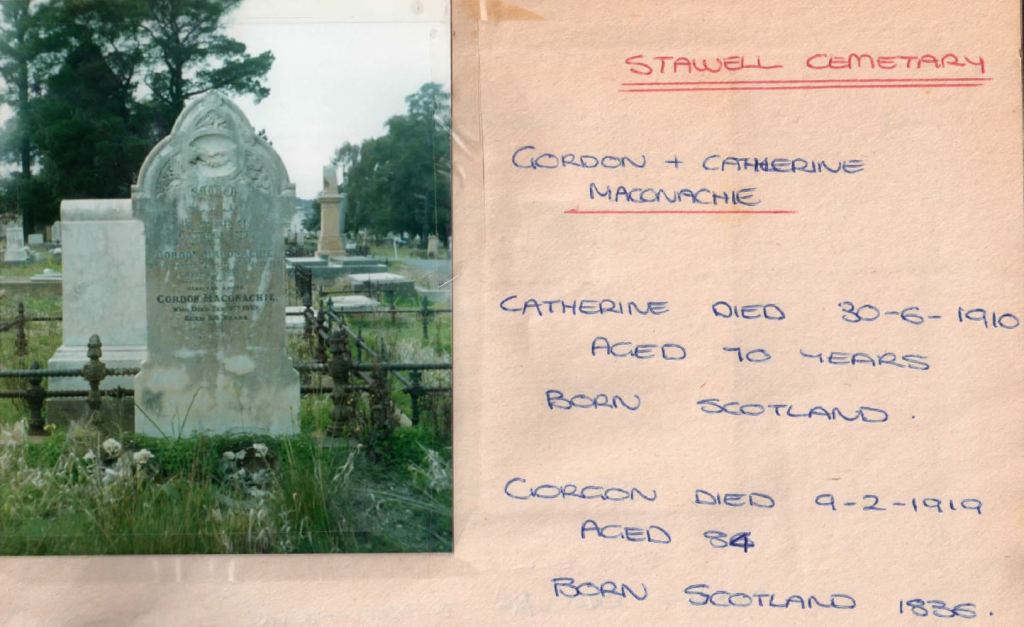 STAWELL CEMETARY
GORDON + CATHERINE
MACONACHIE
CATHERINE DIED 30-6-1910
AGED 70 YEARS
BORN SCOTLAND.
GORGON DIED 9-2-1919
AGED 84
BORN SCOTLAND 1836.
GORDON MACONACHIE
GORDON MACONACHIE,
WHO DIED
AGED YEARS